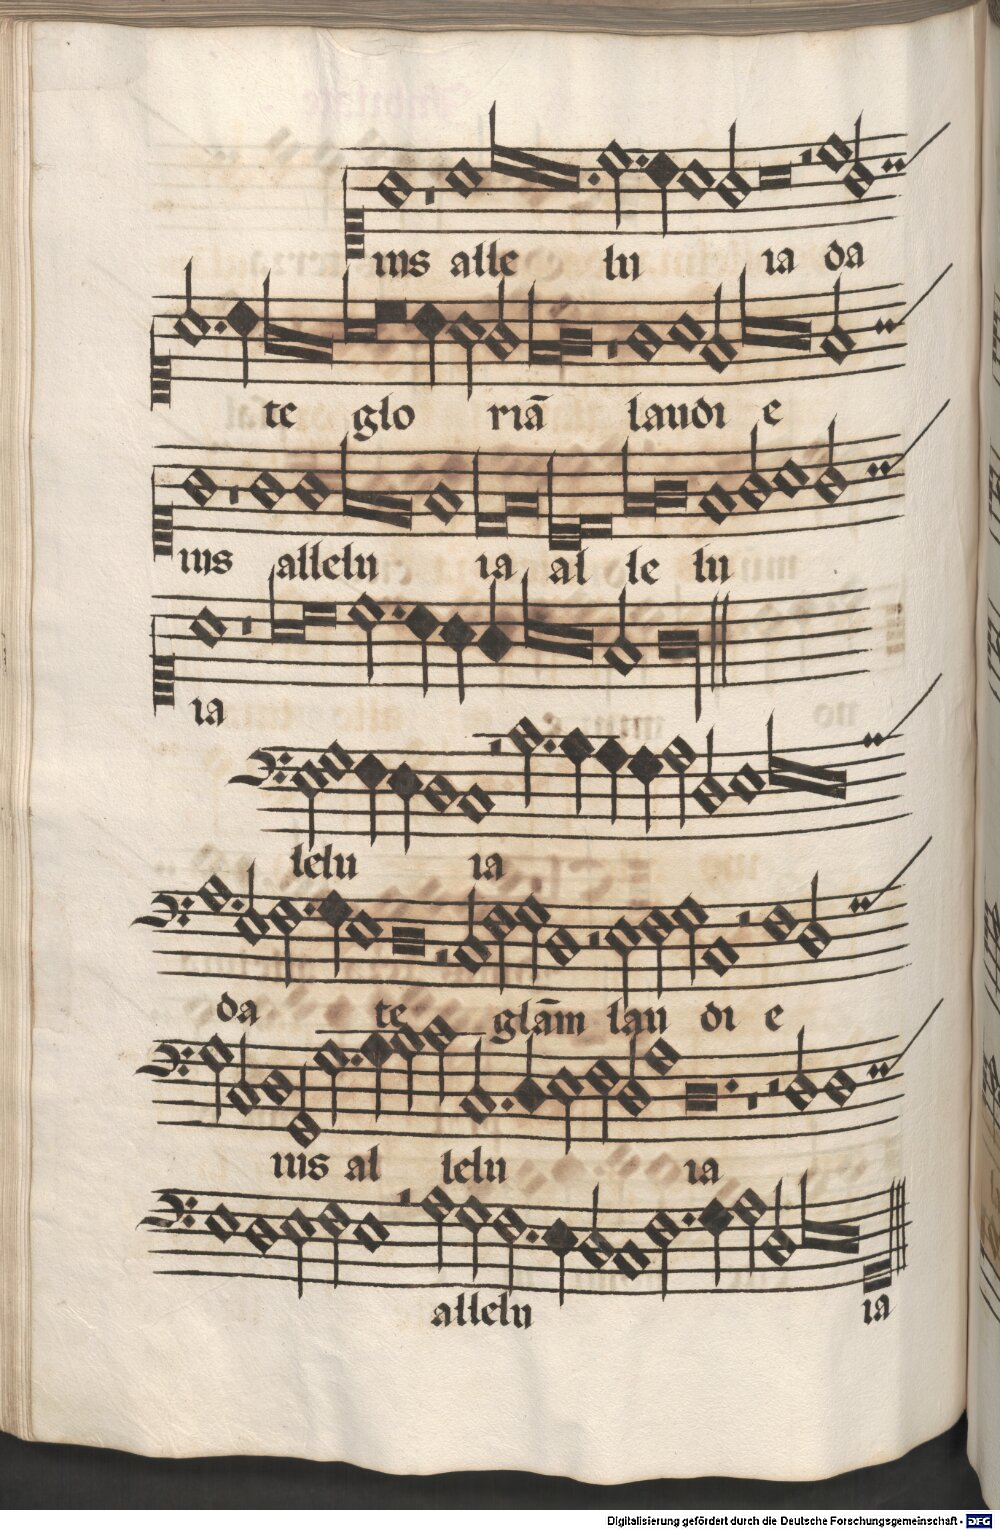 ius alle lu ia da
te glo riā laudi e
ius allelu ia al le lu
ia
lelu ia
da te glām lau di e
ius al lelu ia
allelu ia
Digitalisierung gefördert durch die Deutsche Forschungsgemeinschaft - DFG